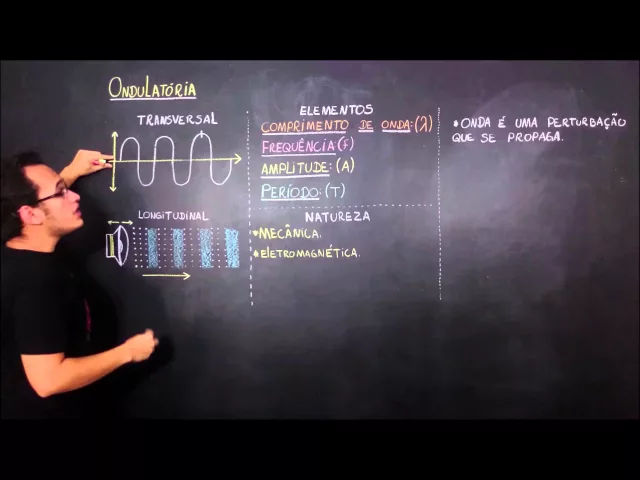 ONDULATÓRIA
TRANSVERSAL
LONGITUDINAL
ELEMENTOS
COMPRIMENTO DE ONDA: (λ)
FREQUÊNCIA (F)
AMPLITUDE: (A)
PERÍODO: (T)
NATUREZA
*MECÂNICA.
*ELETROMAGNÉTICA.
*ONDA É UMA PERTURBAÇÃO
QUE SE PROPAGA.